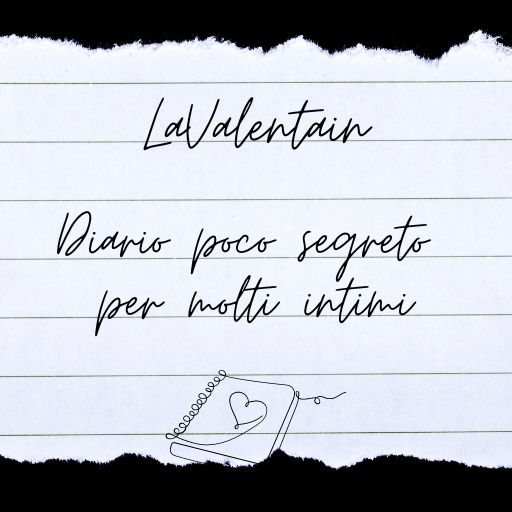 LaValentain
Diario poco segreto
per molti intimi